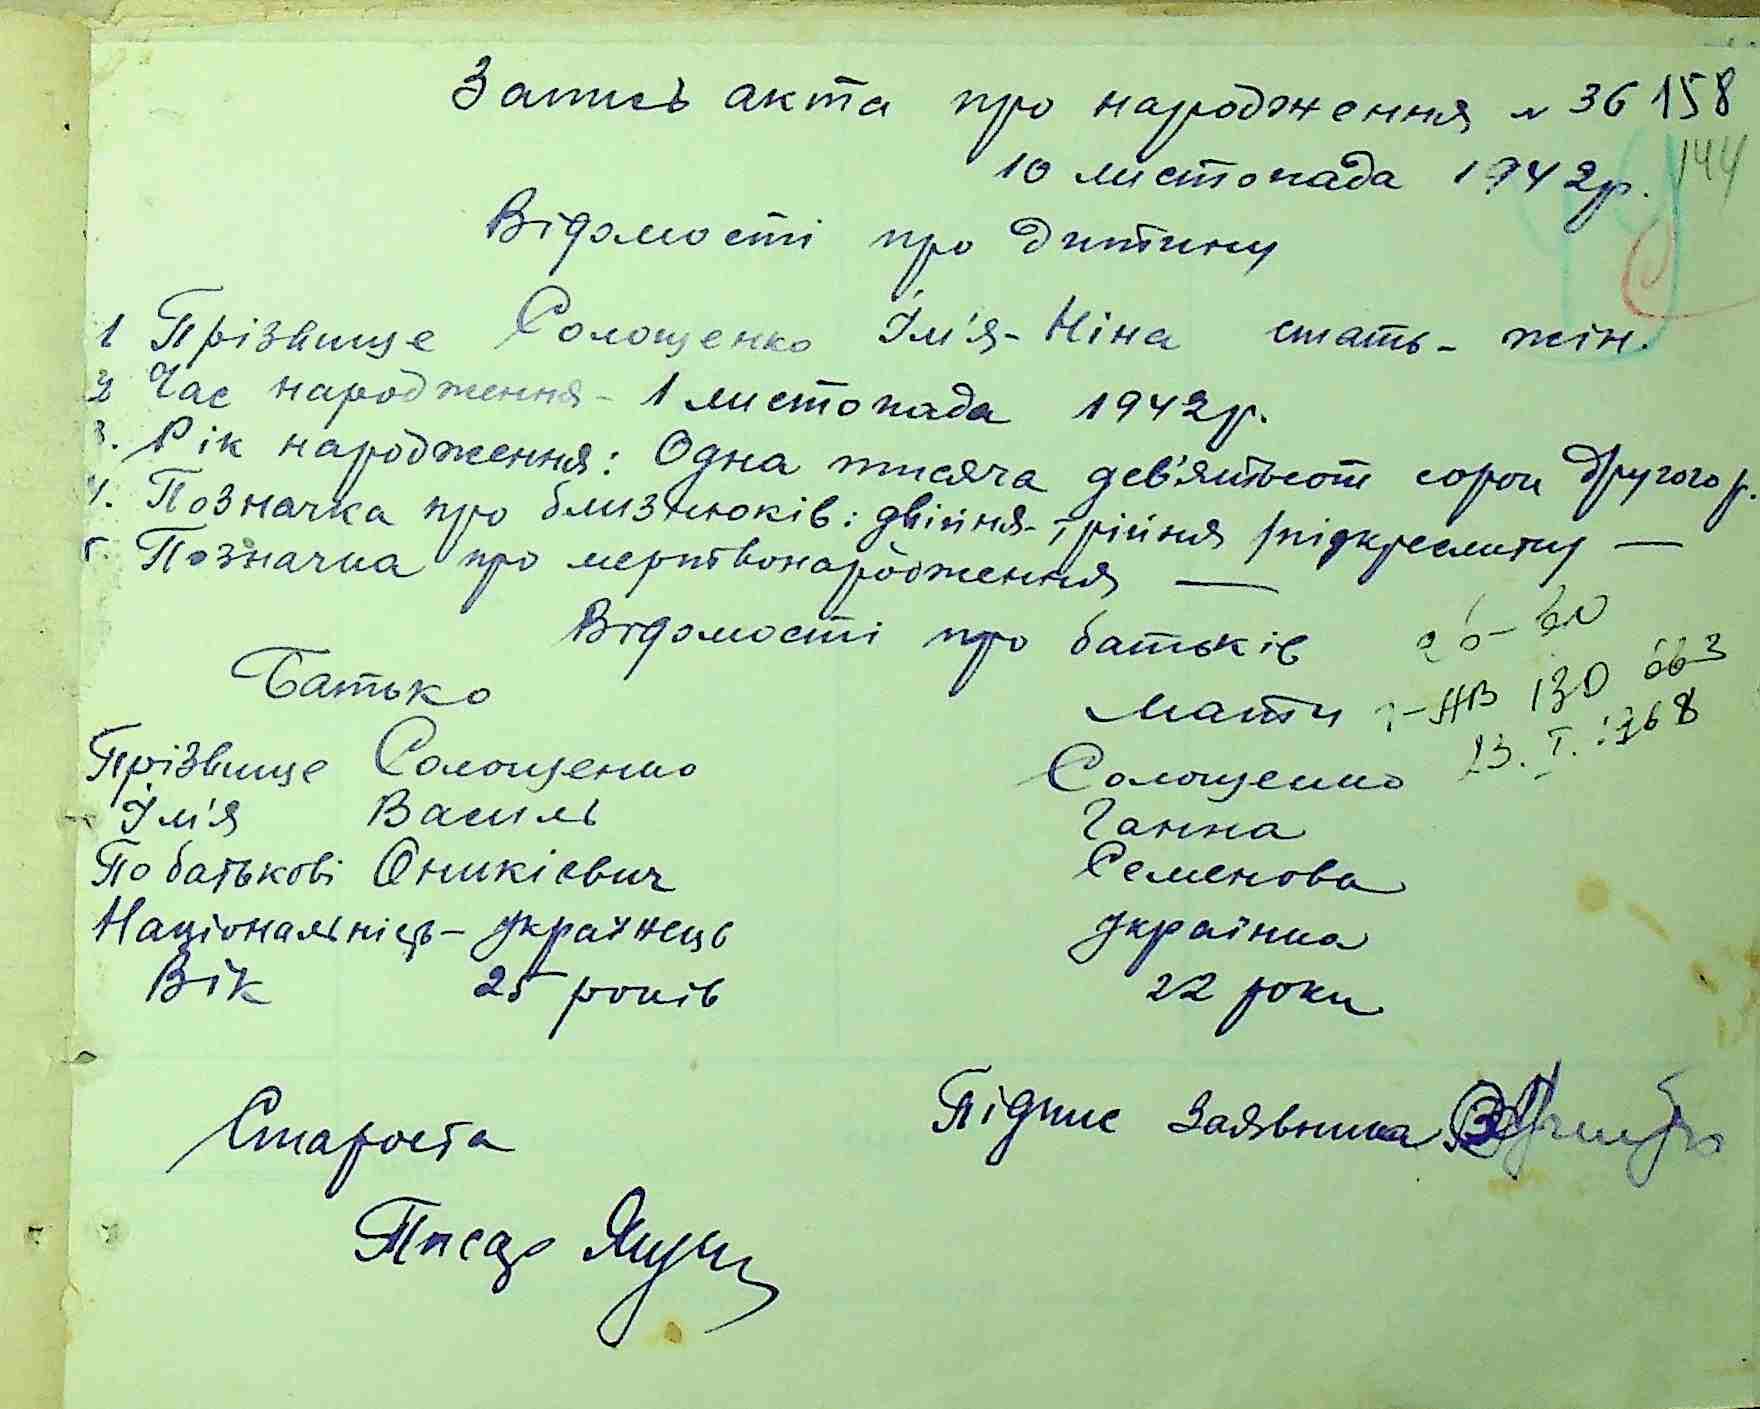 Запись акта про народження № 36 158
144
10 листопада 1942р.
Відомості про дитину
1 Прізвище Солощенко Ім'я - Ніна стать - жін.
2 Час народження - 1 листопада 1942р.
3. Рік народження: Одна тисяча дев'ятьсот сорок другого р.
4. Позначка про близнюків: двійня - трійня /підкреслити/ —
5. Позначка про мертвонародження —
Відомості про батьків
Батько Мати
-АВ 130 063
23. I. 1968
Прізвище Солощенко Солощенко
Ім'я Василь Ганна
По батькові Оникієвич Семенова
Національність - українець українка
Вік 25 років 22 роки
Староста Підпис Заявника
Писар